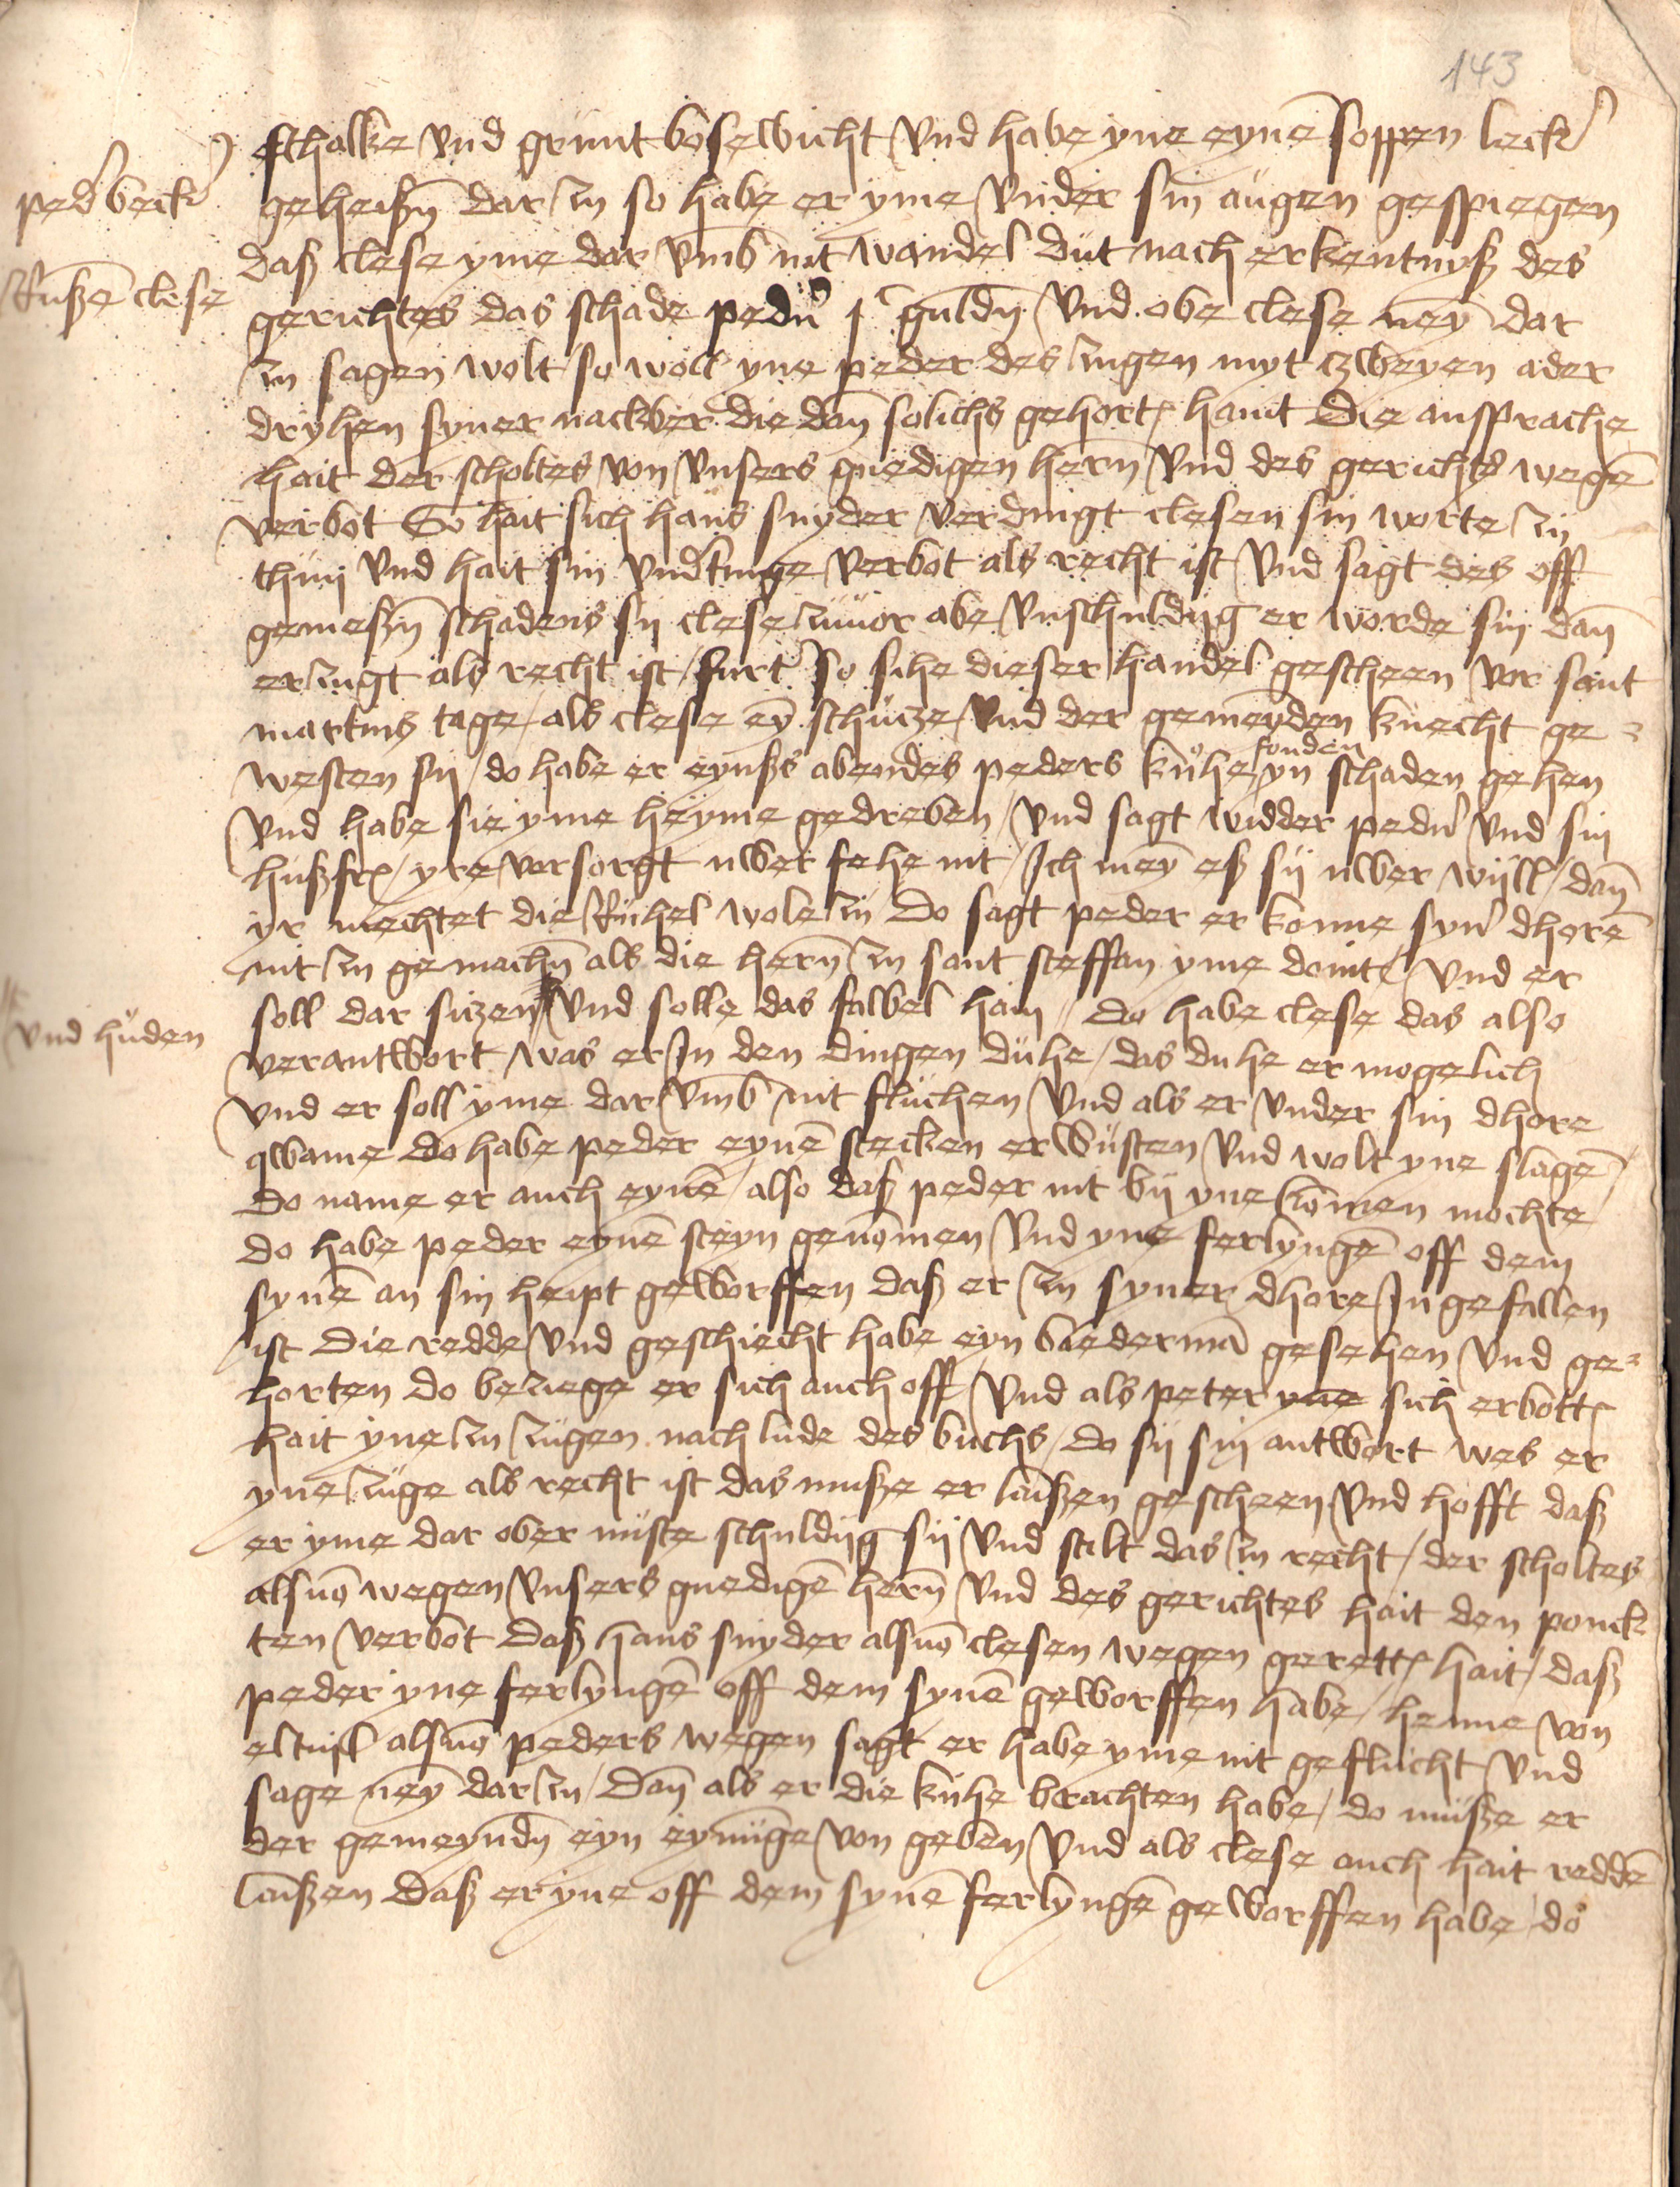 143
schalke vnd grunt bosewicht vnd habe yne eynē soppen leck'
ped' beck'
geheißn̄ dar zu so habe er yme vnder sin augen gespiegen
daß clese yme dar vmb nit wandel dut nach erkentnyß des
Rußē clese
gerichtes das schade pedn' guldn̄ vnd obe clese neȳ dar
zu sagen wolt so woll yne peder des zugen myt czweyen ader
dryhen syner nackber die dan̄ solichs gehort hant Die ansprache
hait der scholtes von vnsers gnedigen hern̄ vnd des gerichts wegē
verbot So hait sich hans snyder verdingt clesen sin worte zu
thun vnd hait sin vnd'tinge verbot als recht ist vnd sagt des off
gemeßn̄ schadens sy clese zuuor abe vnschuldig er worde sin dan̄
erzugt als recht ist furt' so sihe dieser handel gescheen vor sant
martins tage als clese eȳ schutze vnd der gemeynden knecht ge=
westen sy do habe er eynßs abendes peders kuhe fonden yn schaden gehen
vnd habe sie yme heyme gedreben vnd sagt widder pedn' vnd sin
hußfr yre versorgt uwer fehe nit Ich meȳ eß sy uwer will dan̄
yr mechtet die Ruhel wole zu Do sagt peder er konne syn' dhorē
nit zu gemachn̄ als die hern̄ zu sant steffan yme doint vnd er
soll dar sitzen vnd solle das fawel han Do habe clese das also
vnd huden
verantwort was er In den dingen duhe das duhe er mogelich
vnd er soll yme dar vmb nit fluchen vnd als er vnder sin dhore
qwame do habe peder eynē stecken erwusten vnd wolt yne slagē
do name er auch eynē also daß peder nit by yne komen mochte
do habe peder eynē steyn genōmen vnd yne ferlyngē off dem
synē an sin heipt geworffen daß er zu syner dhore In gefallen
ist Die redde vnd geschiecht habe eyn biederman̄ gesehen vnd ge=
horten do beziege er sich auch off vnd als peter yne sich erbott
hait yne zu zugen nach lude des buchs do sy sin antwort wes er
yne zuge als recht ist das muße er laißen gescheen vnd hofft daß
er yme dar ober nuste schuldig sy vnd stalt das zu recht der scholtes
alsuō wegen vnsers gnedigē hern̄ vnd des gerichtes hait den ponck
ten verbot Daß hans snyder alsuō clesen wegen gerett hait daß
peder yne ferlyngē off dem synē geworffen habe henne von
eltuil alsuō peders wegen sagt er habe yme nit geflucht vnd
sage neȳ dar zu Dan̄ als er die kuhe brachten habe do muße er
der gemeyndn̄ eyn eynunge von geben vnd als clese auch hait reddē
laißen Daß er yne off dem synē ferlyngē geworffen habe do